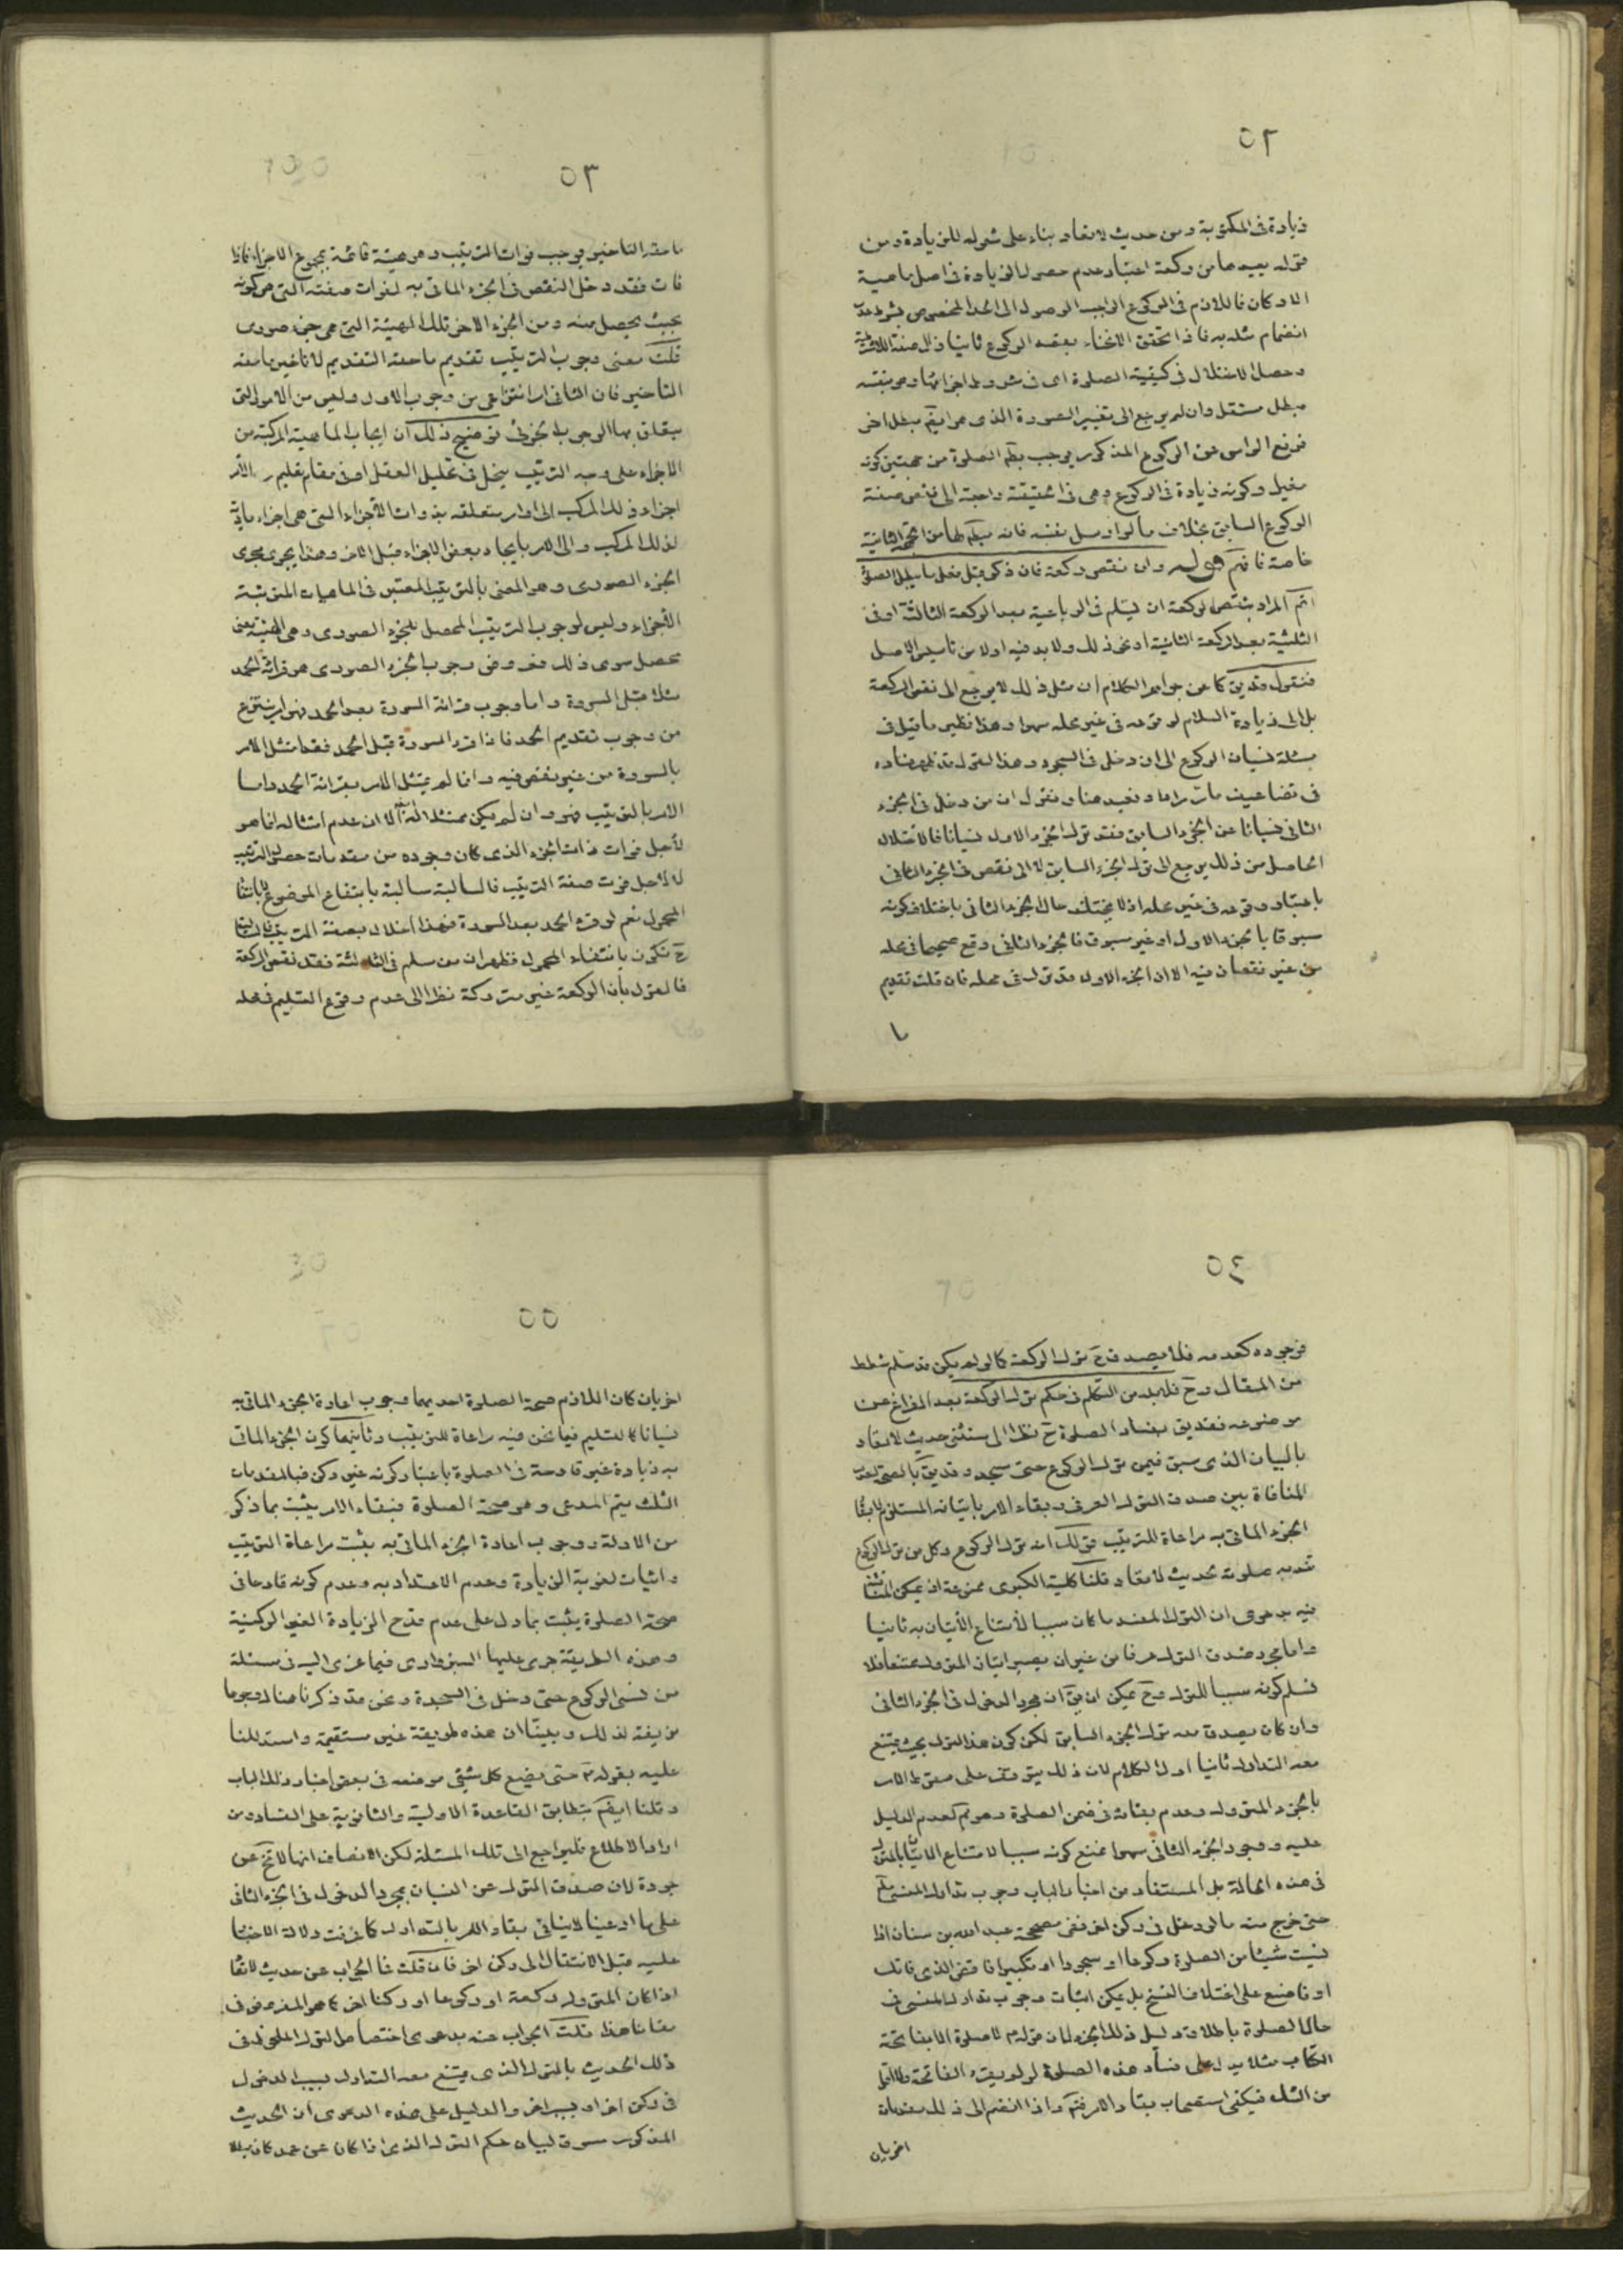 ٥٢
زيادة فى المكتوبة ومن حديث لا تعاد بناء على شموله للزيادة ومن
الاركان فاللازم فى الركوع الواجب الوصول الى الحد المخصوص بشرط عدم
انضمام مثله به فاذا تحقق الانحناء بقصد الركوع ثانيا زال صفة
وحصل الاختلال فى كيفية الصلوة اى فى شروط اجزائها وهو بنفسه
مبطل مستقل وان لم يرجع الى تغيير الصورة الذى هو ايضا مبطل اخر
فرفع الراس عن الركوع المذكور يوجب بطلان الصلوة من جهتين كونه
وكونه زيادة فى الركوع وهى فى الحقيقة راجعة الى نقص صفة
الركوع السابق بخلاف ما لو اوصل نفسه فانه من الجهة الثانية
خاصة فافهم قوله وان نقص ركعة فان ذكر قبل فعل ما يبطل الصلوة
اتم المراد بنقص الركعة ان يسلم فى الرباعية بعد الركعة الثالثة او فى
الثلثية بعد الركعة الثانية او نحو ذلك ولا بد فيه اولا من تاسيس الاصل
فنقول قد يق كما عن جواهر الكلام ان مثل ذلك لا يرجع الى نقص الركعة
بل الى زيادة السلام لوقوعه فى غير محله سهوا وهذا نظير ما قيل فى
مسئلة نسيان الركوع الى ان دخل فى السجود وهذا القول قد ظهر فساده
فى تضاعيف ما مر مرارا ونعيد هنا ونقول ان من دخل فى الجزء
الثانى نسيانا عن الجزء السابق فقد ترك الجزء الاول نسيانا فالاختلال
الحاصل من ذلك يرجع الى ترك الجزء السابق لا الى نقص فى الجزء الثانى
باعتبار وقوعه فى غير محله اذ لا يختلف حال الجزء الثانى باختلاف كونه
مسبوقا بالجزء الاول او غير مسبوق فالجزء الثانى وقع صحيحا فى محله
من غير نقصان فيه الا ان الجزء الاول قد ترك فى محله فان قلت تقديم
٥٣
ما حقه التاخير يوجب فوات الترتيب وهو هيئة قائمة بمجموع الاجزاء فاذا
فات فقد دخل النقص فى الجزء الماتى به لفوات صفته التى هى كونه
بحيث يحصل منه ومن الجزء الاخر تلك الهيئة التى هى جزء صورى
قلت معنى وجوب الترتيب تقديم ما حقه التقديم لا تاخير ما حقه
التاخير فان الثانى امر انتزاعى من وجوب الاول وليس من الامور التى
يتعلق بها الوجوب توضيح ذلك ان ايجاب الماهية المركبة من
الاجزاء على وجه الترتيب ينحل فى تحليل العقل او فى مقام تعليم الامر
اجزاء ذلك المركب الى اوامر متعلقة بذوات الاجزاء التى هى اجزاء مادية
لذلك المركب والى الامر بايجاد بعض الاجزاء قبل الاخر وهذا يجرى مجرى
الجزء الصورى وهو المعنى بالترتيب المعتبر فى الماهيات المترتبة
الاجزاء وليس لوجوب الترتيب المحصل للجزء الصورى وهى الهيئة معنى
محصل سوى ذلك فمعروض وجوب الجزء الصورى هو قرائة الحمد
مثلا قبل السورة واما وجوب قرائة السورة بعد الحمد فهو امر ينتزع
من وجوب تقديم الحمد فاذا قرء السورة قبل الحمد فقد امتثل الامر
بالسورة من غير نقص فيه وانما لم يمتثل الامر بقرائة الحمد واما
الامر بالترتيب فهو وان لم يكن ممتثلا الا ان عدم امتثاله انما هو
لاجل فوات ذات الجزء الذى كان وجوده من مقدمات حصول الترتيب
لا لاجل فوت صفة الترتيب فالسالبة سالبة بانتفاء الموضوع لا بانتفاء
المحمول نعم لو قرء الحمد بعد السورة فهذا اخلال بصفة الترتيب
ح تكون بانتفاء المحمول فظهر ان من سلم فى الثالثة فقد نقص الركعة
فالقول بان الركعة غير متروكة نظرا الى عدم وقوع التسليم فى محله
٥٤
فوجوده كعدمه فلا يصدق ح ترك الركعة كما لو لم يكن قد سلم شطط
من المقال وح فلا بد من التكلم فى حكم ترك الركعة بعد الفراغ عن
موضوعه فقد يق بفساد الصلوة ح نظرا الى مستثنى حديث لا تعاد
بالبيان الذى سبق فيمن ترك الركوع حتى سجد وقد يق بالصحة لعدم
المنافاة بين صدق الترك العرفى وبقاء الامر باتيانه المستلزم
الجزء الماتى به مراعاة للترتيب قولك انه ترك الركوع وكل من ترك الركوع
صلوته لحديث لا تعاد قلنا كلية الكبرى ممنوعة اذ يمكن المناقشة
فيه بدعوى ان الترك المفسد ما كان سببا لامتناع الاتيان به ثانيا
واما مجرد صدق الترك عرفا من غير ان يصير اتيان المتروك ممتنعا فلا
نسلم كونه سببا للترك وح يمكن ان يق ان مجرد الدخول فى الجزء الثانى
وان كان يصدق معه ترك الجزء السابق لكن كون هذا الترك بحيث يمتنع
معه التدارك ثانيا اول الكلام لان ذلك يتوقف على سقوط الامر
بالجزء المتروك وعدم بقائه فى ضمن الصلوة وهو ثم لعدم الدليل
عليه ووجود الجزء الثانى سهوا نمنع كونه سببا لامتناع الاتيان بالمتروك
فى هذه الحالة بل المستفاد من اخبار الباب وجوب تدارك المنسى
حتى خرج منه ما لو دخل فى ركن اخر ففى صحيحة عبد الله بن سنان اذا
نسيت شيئا من الصلوة ركوعا او سجودا او تكبيرا فاقض الذى فاتك
او فاصنع على اختلاف النسخ بل يمكن اثبات وجوب تدارك المنسى فى
حال الصلوة باطلاق دليل ذلك الجزء لان قوله لا صلوة الا بفاتحة
الكتاب مثلا يدل على فساد هذه الصلوة لو لم يقرء الفاتحة
من الشك فيكفى استصحاب بقاء الامر واذا انضم الى ذلك مقدمات
اخريان
٥٥
اخريان كان اللازم صحة الصلوة احديهما وجوب اعادة الجزء الماتى به
نسيانا كالتسليم فيما نحن فيه مراعاة للترتيب وثانيتهما كون الجزء الماتى
به زيادة غير قادحة فى الصلوة باعتبار كونه غير ركن فبالمقدمات
الثلث يتم المدعى وهو صحة الصلوة فبقاء الامر يثبت بما ذكر
من الادلة ووجوب اعادة الجزء الماتى به يثبت مراعاة الترتيب
واثبات لغوية الزيادة وعدم الاعتداد به وعدم كونه قادحا فى
صحة الصلوة يثبت بما دل على عدم قدح الزيادة الغير الركنية
وهذه الطريقة جرى عليها السبزوارى فيما عزى اليه فى مسئلة
من نسى الركوع حتى دخل فى السجدة ونحن قد ذكرنا هناك وجوها
مزيفة لذلك وبينا ان هذه طريقة غير مستقيمة واستدللنا
عليه بقوله حتى يضع كل شئ موضعه فى بعض اخبار ذلك الباب
وقلنا ايضا بتطابق القاعدة الاولية والثانوية على الفساد ومن
اراد الاطلاع فليراجع الى تلك المسئلة لكن الانصاف انها لا تخ عن
جودة لان صدق الترك عن النسيان بمجرد الدخول فى الجزء الثانى
لا ينافى بقاء الامر بالتدارك كما عرفت دلالة الاخبار
عليه قبل الانتقال الى ركن اخر فان قلت فما الجواب عن حديث لا تعاد
اذا كان المتروك ركعة او ركوعا او ركنا اخر كما هو المفروض فى
مقامنا هذا قلت الجواب عنه بدعوى اختصاص الترك الملحوظ فى
ذلك الحديث بالترك الذى يمتنع معه التدارك بسبب الدخول
فى ركن اخر او بسبب اخر والدليل على هذه الدعوى ان الحديث
المذكور مسوق لبيان حكم الترك الذى اذا كان عن عمد كان مبطلا